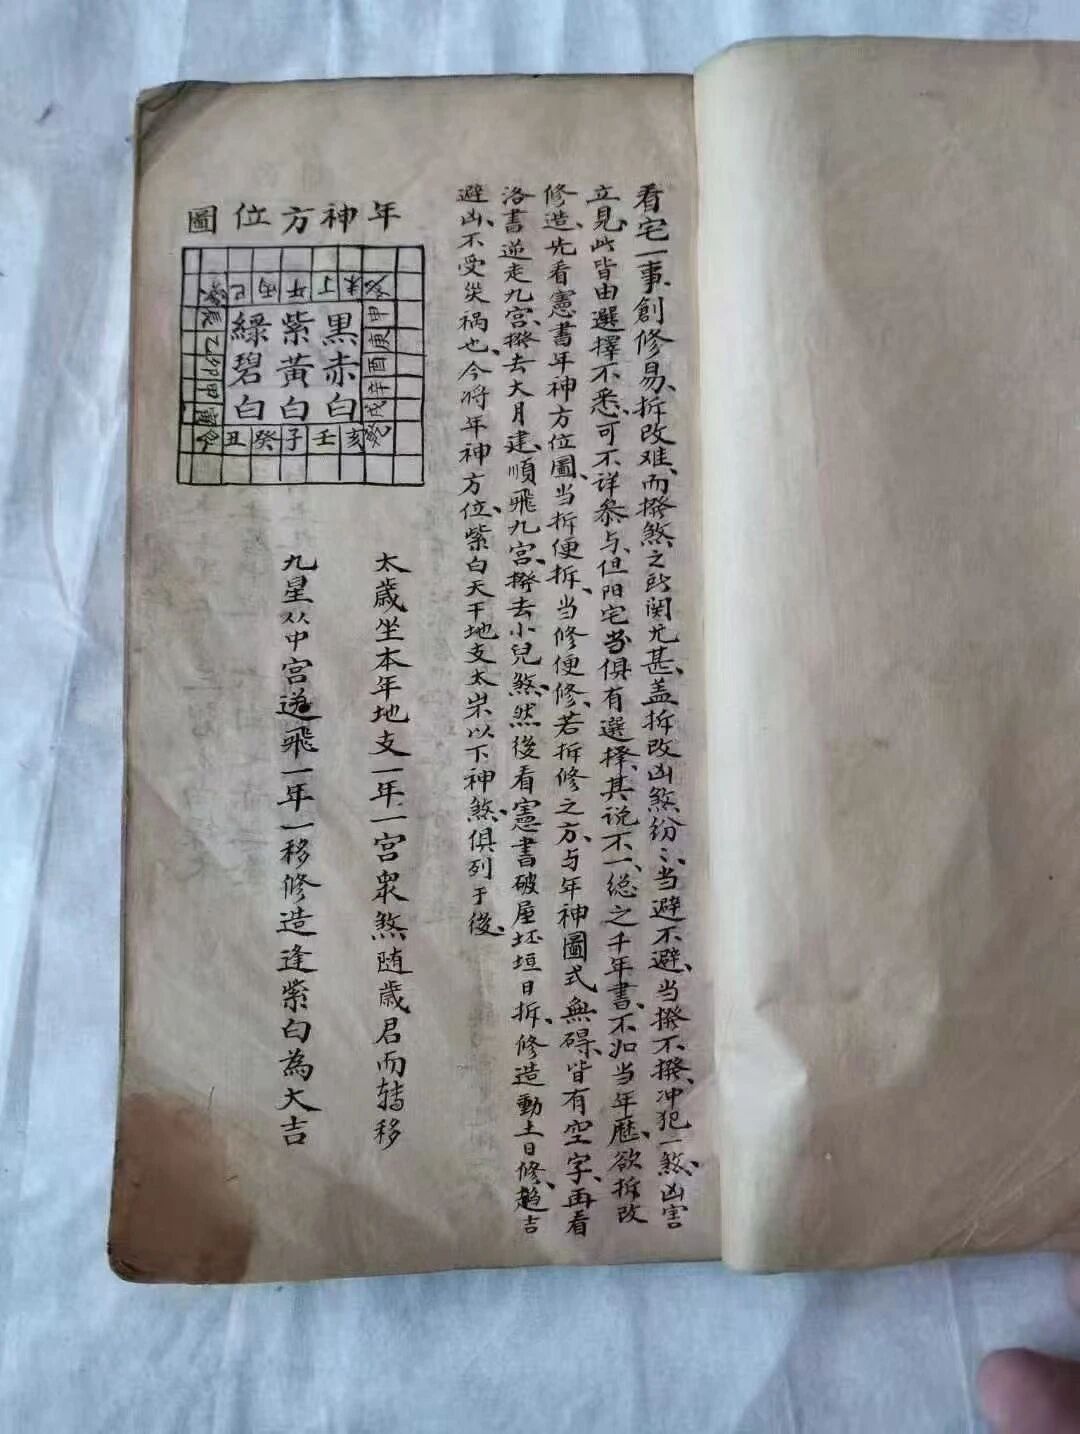 看宅一事、創修易、拆改难、而撥煞之所関尤甚、盖拆改凶煞纷〻、当避不避、当撥不撥、冲犯一煞、凶害
立見、此皆由選擇不悉、可不详叅与、但阳宅皆俱有選擇、其说不一、総之千年書、不如当年歷、欲拆改
修造、先看憲書年神方位圖、当拆便拆、当修便修、若拆修之方、与年神圖式無碍、皆有空字、再看
洛書逆走九宫、撥去大月建、順飛九宫、撥去小兒煞、然後看憲書破屋坯垣日拆、修造動土日修、趋吉
避凶、不受災禍也、今将年神方位、紫白天干地支太岁以下神煞、俱列于後、
年神方位圖
巳丙午丁未
辰乙卯甲寅
申庚酉辛戌
綠紫黑
碧黃赤
白白白
丑癸子壬亥
太歲坐本年地支一年一宫眾煞随歲君而转移
九星从中宫递飛一年一移修造逢紫白為大吉